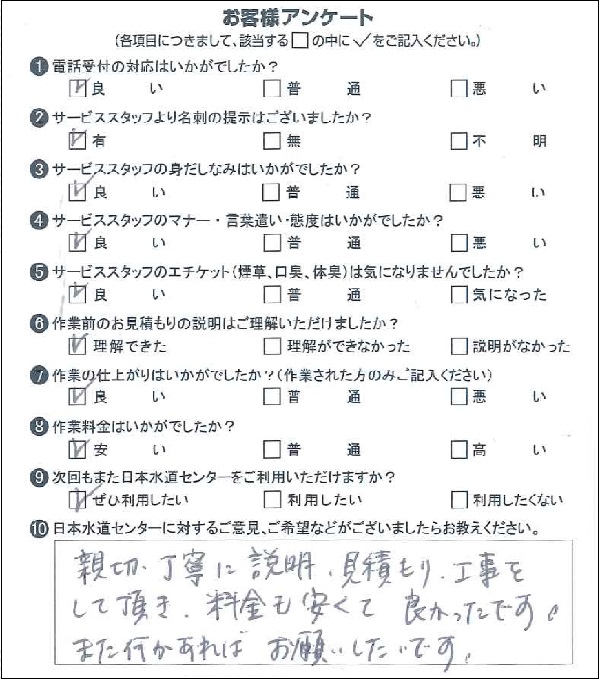 お客様アンケート
(各項目につきまして、該当する□の中に✓をご記入ください。)
❶電話受付の対応はいかがでしたか?
☑良い □普通 □悪い
❷サービススタッフより名刺の提示はございましたか?
☑有 □無 □不明
❸サービススタッフの身だしなみはいかがでしたか?
☑良い □普通 □悪い
❹サービススタッフのマナー・言葉遣い・態度はいかがでしたか?
☑良い □普通 □悪い
❺サービススタッフのエチケット(煙草、口臭、体臭)は気になりませんでしたか?
☑良い □普通 □気になった
❻作業前のお見積もりの説明はご理解いただけましたか?
☑理解できた □理解ができなかった □説明がなかった
❼作業の仕上がりはいかがでしたか?(作業された方のみご記入ください)
☑良い □普通 □悪い
❽作業料金はいかがでしたか?
☑安い □普通 □高い
❾次回もまた日本水道センターをご利用いただけますか?
☑ぜひ利用したい □利用したい □利用したくない
❿日本水道センターに対するご意見、ご希望などがございましたらお教えください。
親切、丁寧に説明、見積もり、工事を
して頂き、料金も安くて良かったです。
また何かあればお願いしたいです。